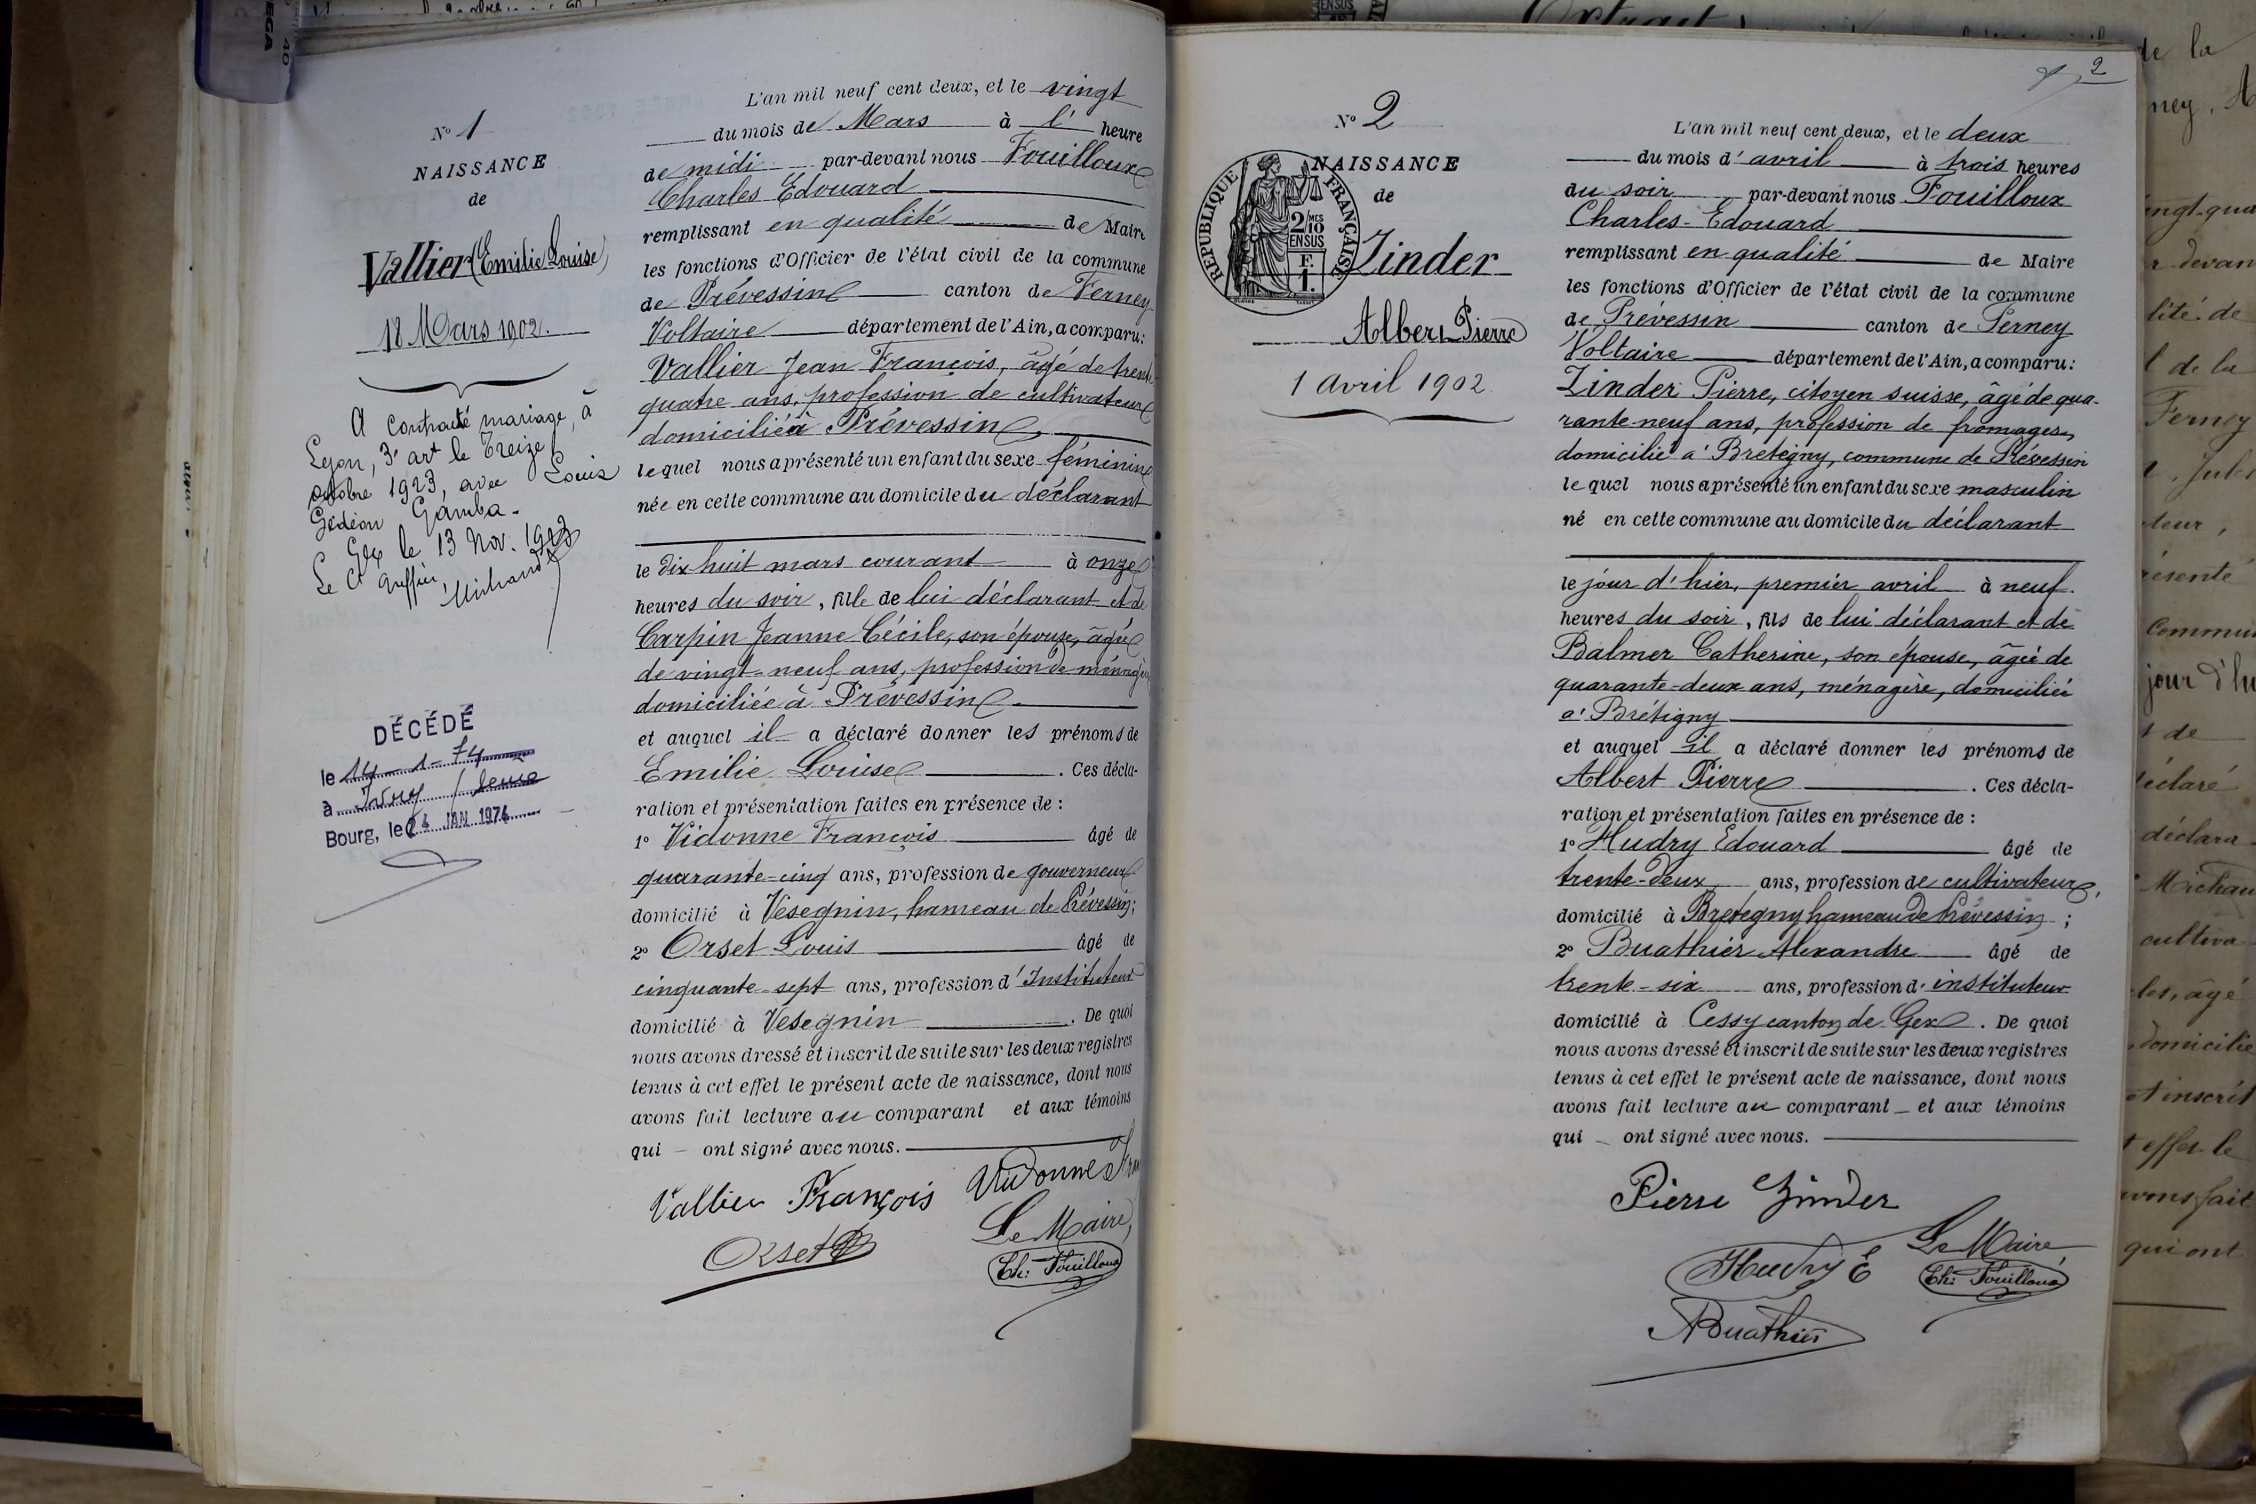 N° 1
NAISSANCE
de
Vallier (Emilie Louise)
18 Mars 1902.
A contracté mariage, à
Lyon, 3e art le treize
octobre 1923, avec Louis
Gédéon Gamba.
Gex le 13 Nov. 1923
Le Ct Greffier,
Michaud
DÉCÉDÉ
le 14-1-74
à Ivry / Seine
Bourg, le 24 JAN 1974
L'an mil neuf cent deux, et le vingt
du mois de Mars à l' heure
de midi par-devant nous Fouilloux
Charles Edouard
remplissant en qualité de Maire
les fonctions d'Officier de l'état civil de la commune
de Prévessin canton de Ferney
Voltaire département de l'Ain, a comparu:
Vallier Jean François, âgé de trente
quatre ans, profession de cultivateur
domicilié à Prévessin
lequel nous a présenté un enfant du sexe féminin
née en cette commune au domicile du déclarant
le dix huit mars courant à onze
heures du soir, fille de lui déclarant et de
Carpin Jeanne Cécile, son épouse, âgée
de vingt-neuf ans, profession de ménagère
domiciliée à Prévessin.
et auquel il a déclaré donner les prénoms de
Emilie Louise . Ces décla-
ration et présentation faites en présence de :
1° Vidonne François âgé de
quarante-cinq ans, profession de gouverneur
domicilié à Vésegnin, hameau de Prévessin;
2° Orset Louis âgé de
cinquante-sept ans, profession d'Instituteur
domicilié à Vésegnin . De quoi
nous avons dressé et inscrit de suite sur les deux registres
tenus à cet effet le présent acte de naissance, dont nous
avons fait lecture au comparant et aux témoins
qui – ont signé avec nous.
Vallier François Vidonne Fran
Le Maire,
Orset
Ch: Fouilloux
2
N° 2
NAISSANCE
de
REPUBLIQUE FRANÇAISE
2/10 MES
EN SUS
F.
1.
Zinder
Albert Pierre
1 avril 1902
L'an mil neuf cent deux, et le deux
du mois d'avril à trois heures
du soir par-devant nous Fouilloux
Charles-Edouard
remplissant en qualité de Maire
les fonctions d'Officier de l'état civil de la commune
de Prévessin canton de Ferney
Voltaire département de l'Ain, a comparu:
Zinder Pierre, citoyen suisse, âgé de qua-
rante-neuf ans, profession de fromager,
domicilié à Brétigny, commune de Prévessin
lequel nous a présenté un enfant du sexe masculin
né en cette commune au domicile du déclarant
le jour d'hier, premier avril à neuf
heures du soir, fils de lui déclarant et de
Balmer Catherine, son épouse, âgée de
quarante-deux ans, ménagère, domiciliée
à Brétigny
et auquel il a déclaré donner les prénoms de
Albert Pierre . Ces décla-
ration et présentation faites en présence de :
1° Hudry Edouard âgé de
trente-deux ans, profession de cultivateur,
domicilié à Bretegny hameau de Prévessin ;
2° Buathier Alexandre âgé de
trente-six ans, profession d'instituteur
domicilié à Cessy canton de Gex . De quoi
nous avons dressé et inscrit de suite sur les deux registres
tenus à cet effet le présent acte de naissance, dont nous
avons fait lecture au comparant – et aux témoins
qui – ont signé avec nous.
Pierre Zinder
Hudry E
Le Maire,
Ch: Fouilloux
ABuathier
Extrait
de la
ney, A
ingt-qua
devan
lité de
l de la
Ferney
teur,
ésenté
commun
jour d'hu
t de
éclaré
déclara
Michau
cultiva
les, âgé
domicilié
et inscrit
t effet le
vons fait
qui ont